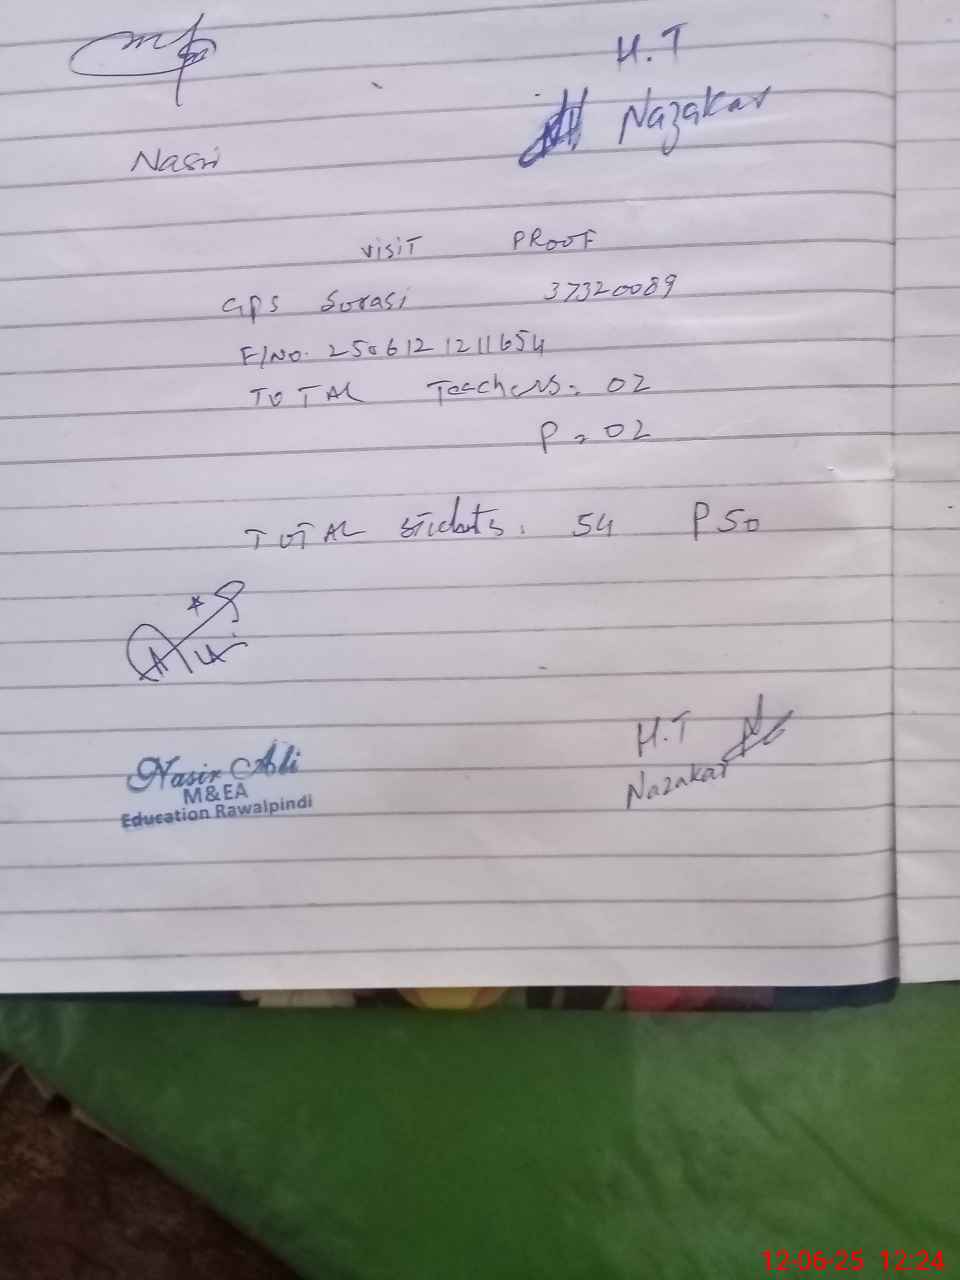 H.T
Nazakat
Nasir
VISIT PROOF
GPS Sorasi 37320089
F/NO. 250612 1211654
TOTAL Teachers: 02
P = 02
TOTAL Students: 54 P 50
H.T
Nazakat
Nasir Ali
M&EA
Education Rawalpindi
12-06-25 12:24